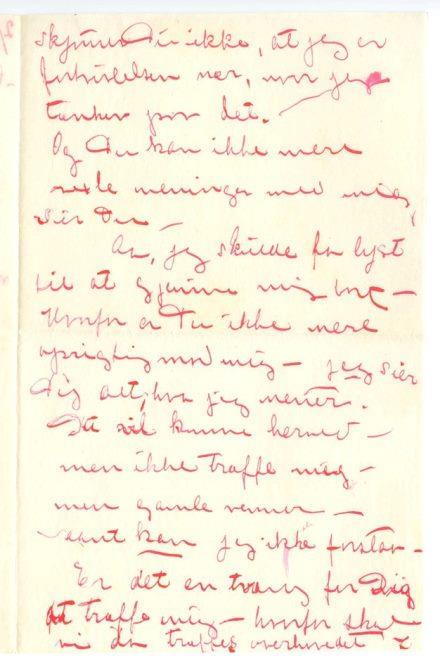 skjønner Du ikke, at jeg er
fortvivlelsen nær, naar jeg
tænker paa det.
Og Du kan ikke mere
veksle meninger med mig,
sier Du –
Aa, jeg skulde faa lyst
til at gjemme mig bort –
Hvorfor er Du ikke mere
oprigtig mod mig – jeg sier
Dig alt, hva jeg mener.
Du vil komme herned –
men ikke træffe mig –
men gamle venner –
saant kan jeg ikke forstaa –
Er det en tvang for Dig
at træffe mig – hvorfor skal
vi da træffes overhovedet ?